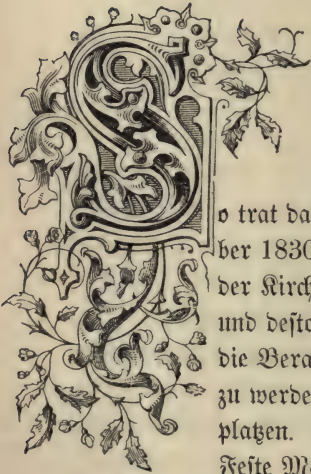 So trat da
ber 1830
der Kirch
und desto
die Bera
zu werde
platzen.
Feste Ma